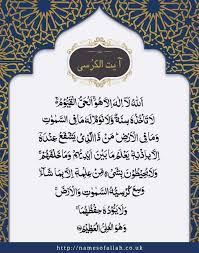 آیت الکرسی
اَللّٰهُ لَآ اِلٰهَ اِلَّا هُوَ اَلْحَيُّ الْقَيُّوْمُ
لَا تَاْخُذُهٗ سِنَةٌ وَّلَا نَوْمٌ لَهٗ مَا فِي السَّمٰوٰتِ
وَمَا فِي الْاَرْضِ مَنْ ذَا الَّذِيْ يَشْفَعُ عِنْدَهٗٓ
اِلَّا بِاِذْنِهٖ يَعْلَمُ مَا بَيْنَ اَيْدِيْهِمْ وَمَا خَلْفَهُمْ
وَلَا يُحِيْطُوْنَ بِشَيْءٍ مِّنْ عِلْمِهٖٓ اِلَّا بِمَا شَآءَ
وَسِعَ كُرْسِيُّهُ السَّمٰوٰتِ وَالْاَرْضَ
وَلَا يَئُوْدُهٗ حِفْظُهُمَا
وَهُوَ الْعَلِيُّ الْعَظِيْمُ
http://namesofallah.co.uk